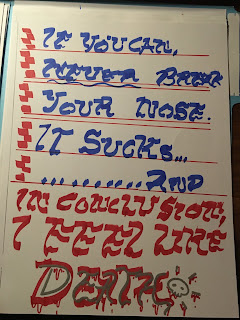 IF YOU CAN,
NEVER BREAK
YOUR NOSE.
IT SUCKS...
...........AND
IN CONCLUSION,
I FEEL LIKE
DEATH.